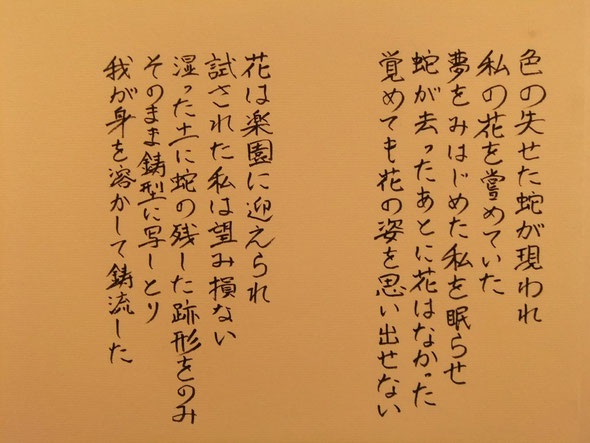 色の失せた蛇が現われ
私の花を嘗めていた
夢をみはじめた私を眠らせ
蛇が去ったあとに花はなかった
覚めても花の姿を思い出せない
花は楽園に迎えられ
試された私は望み損ない
湿った土に蛇の残した跡形をのみ
そのまま鋳型に写しとり
我が身を溶かして鋳流した